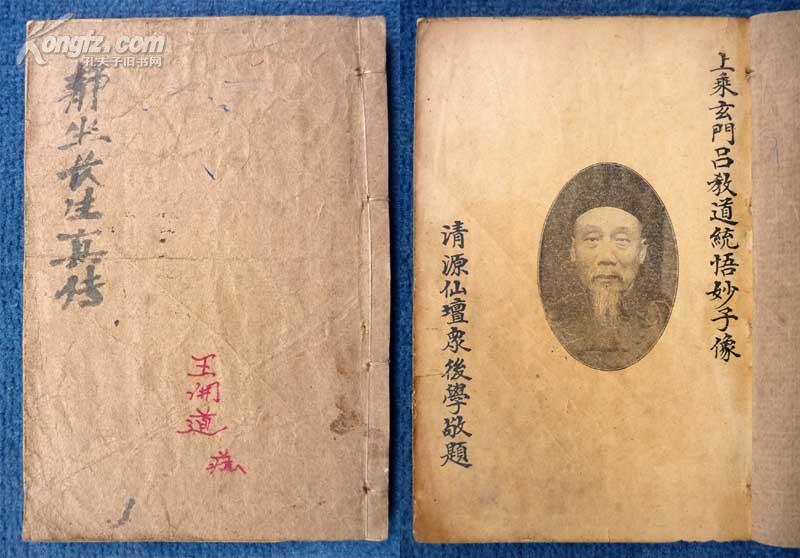 Kongfz.com
孔夫子旧书网
静坐长生真传
王洲道
上乘玄門吕教道統悟妙子像
清源仙壇眾後學敬題